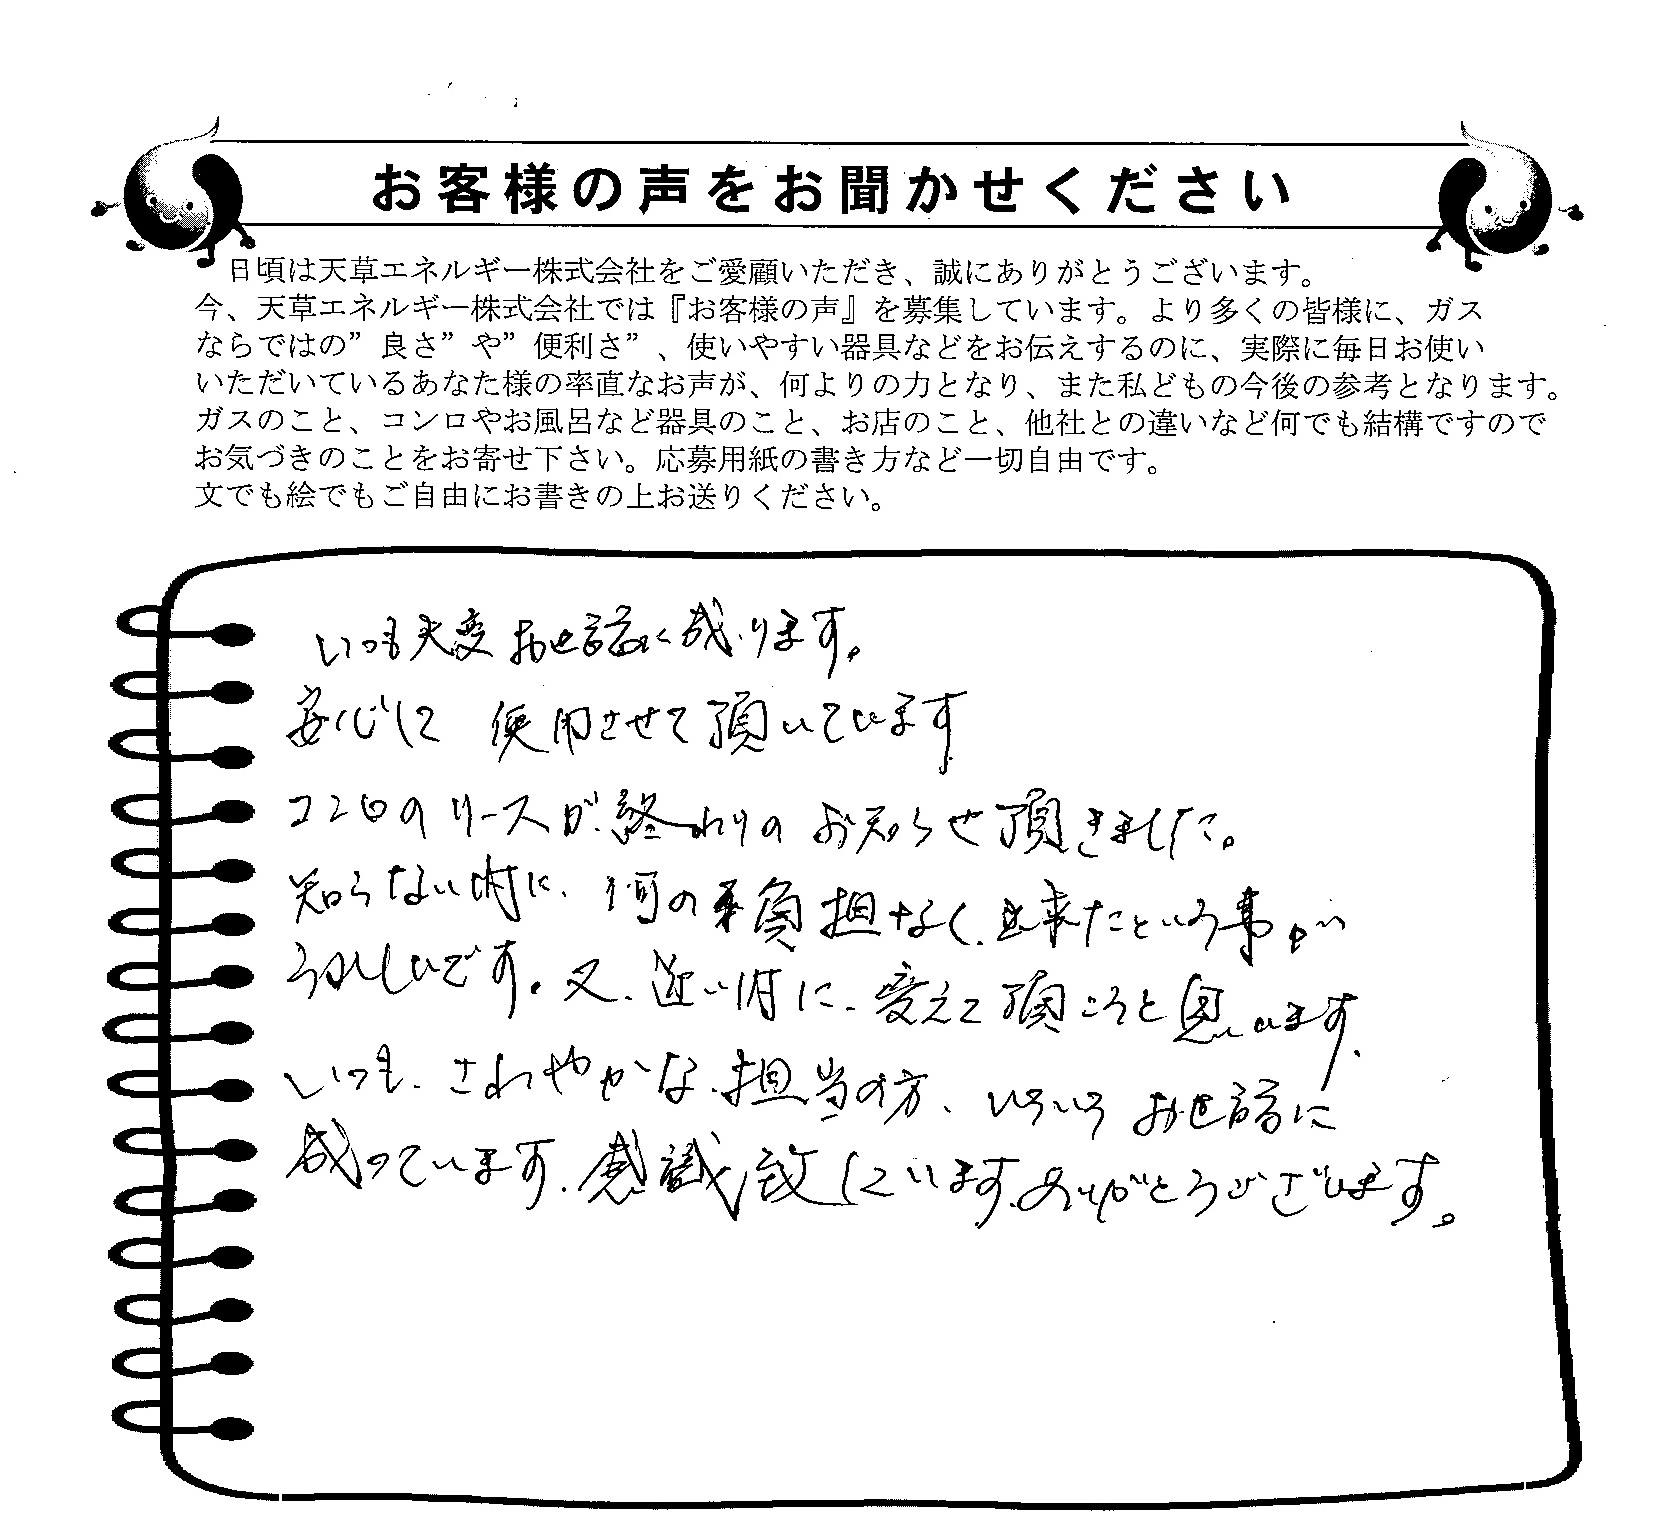 お客様の声をお聞かせください
日頃は天草エネルギー株式会社をご愛顧いただき、誠にありがとうございます。
今、天草エネルギー株式会社では『お客様の声』を募集しています。より多くの皆様に、ガス
ならではの”良さ”や”便利さ”、使いやすい器具などをお伝えするのに、実際に毎日お使い
いただいているあなた様の率直なお声が、何よりの力となり、また私どもの今後の参考となります。
ガスのこと、コンロやお風呂など器具のこと、お店のこと、他社との違いなど何でも結構ですので
お気づきのことをお寄せ下さい。応募用紙の書き方など一切自由です。
文でも絵でもご自由にお書きの上お送りください。
いつも大変お世話に成ります。
安心して 使用させて頂いています
コンロのリースが、終わりのお知らせ頂きました。
知らない時に、何の負担なく、出来たという事が
うれしいです。又、近い時に、変えて頂こうと思います、
いつも、さわやかな、担当の方、いろいろお世話に
成っています、感謝致しています、ありがとうございます。